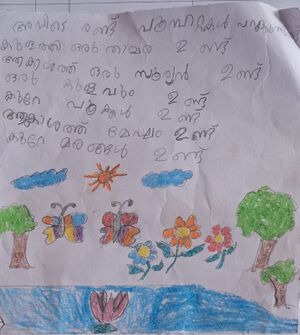 അവിടെ രണ്ട് പൂമ്പാറ്റകൾ പറക്കുന്നു
കുളത്തി ഒരു താമര ഉണ്ട്
ആകാശത്ത് ഒരു സൂര്യൻ ഉണ്ട്
ഒരു കുളവും ഉണ്ട്
കുറേ പൂക്കൾ ഉണ്ട്
ആകാശത്ത് മേഘം ഉണ്ട്
കുറേ മരങ്ങൾ ഉണ്ട്